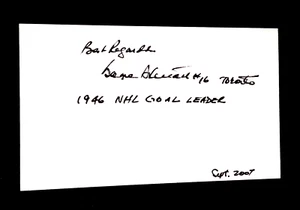 Best Regards
Gaye Stewart #16 Toronto
1946 NHL GOAL LEADER
Sept. 2007